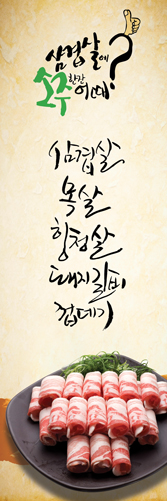 삼겹살에
소주 한잔
어때?
삼겹살
목살
항정살
돼지갈비
껍데기